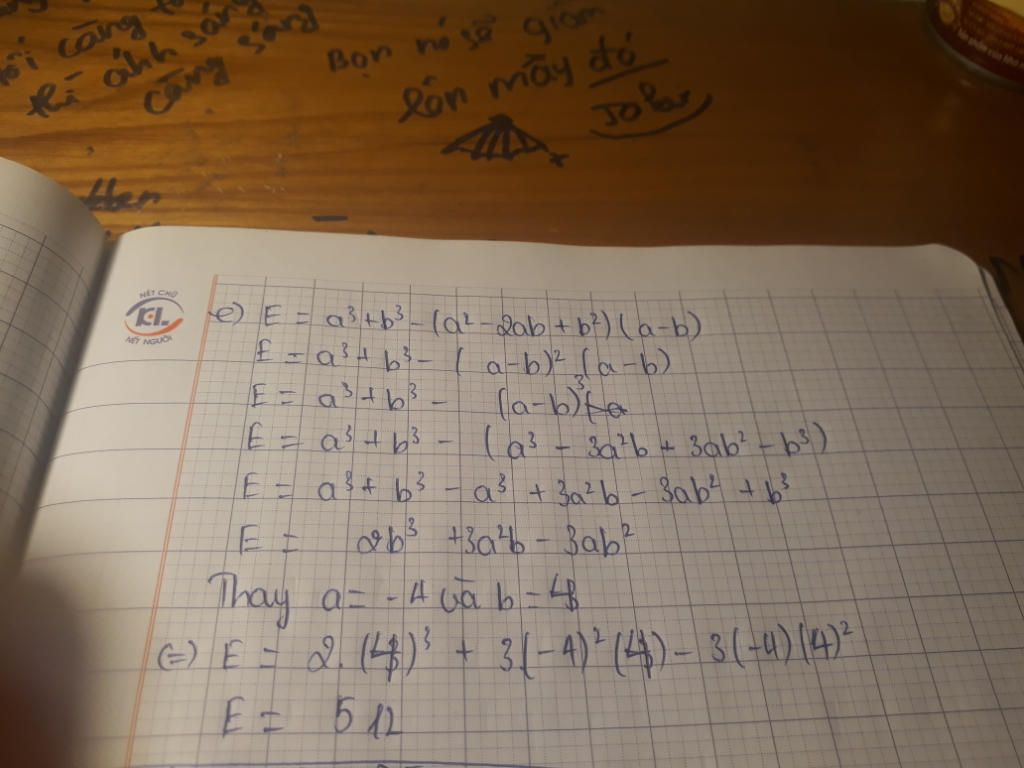 thì ánh sáng
càng sáng
Bọn nó sẽ giảm
lôn mày đó
NÉT CHỮ
NẾT NGƯỜI
e) E = a³ + b³ - (a² - 2ab + b²) (a - b)
E = a³ + b³ - (a - b)² (a - b)
E = a³ + b³ - (a - b)³
E = a³ + b³ - (a³ - 3a²b + 3ab² - b³)
E = a³ + b³ - a³ + 3a²b - 3ab² + b³
E = 2b³ + 3a²b - 3ab²
Thay a = -4 và b = 4
(=) E = 2. (4)³ + 3(-4)² (4) - 3(-4) (4)²
E = 512